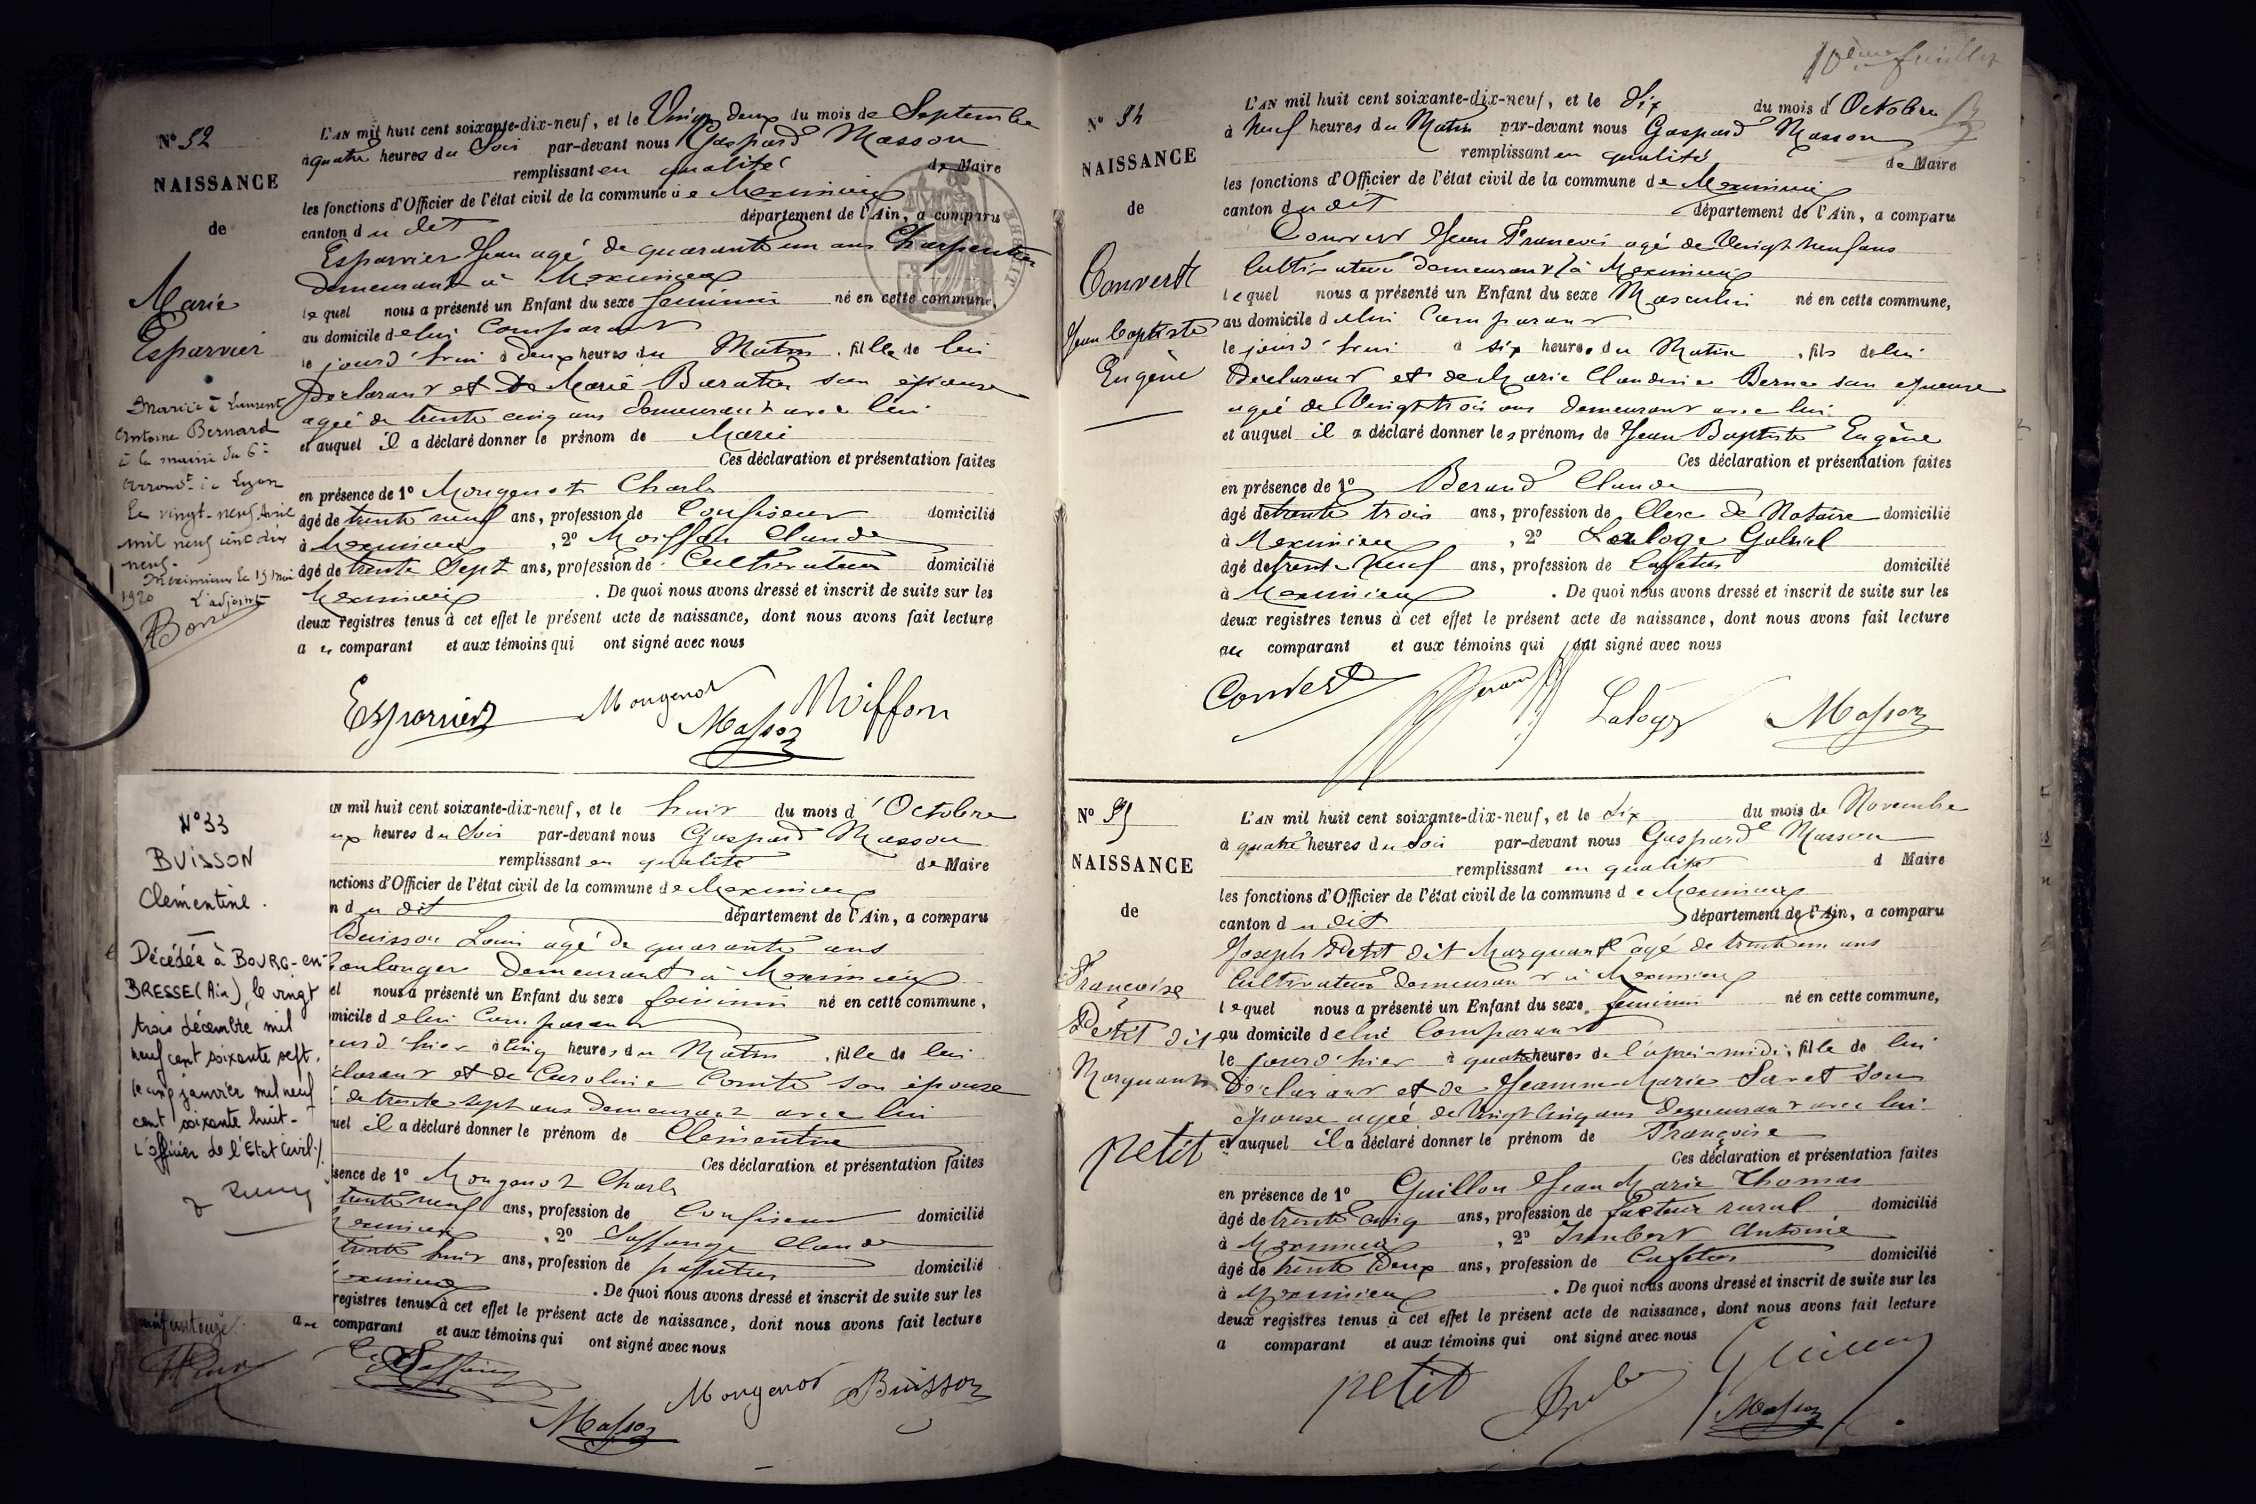 N° 32
NAISSANCE
de
Marie
Esparvier
Mariée à Laurent
Antoine Bernard
à la mairie du 6e
arrondt de Lyon
le vingt-neuf Avril
mil neuf cent dix
neuf.
Meximieux le 15 mai
1920 L'adjoint
L'AN mil huit cent soixante-dix-neuf, et le Vingt deux du mois de Septembre
à quatre heures du Soir par-devant nous Gaspard Masson
remplissant en qualité de Maire
les fonctions d'Officier de l'état civil de la commune de Meximieux
canton du dit département de l'Ain, a comparu
Esparvier Jean agé de quarante un ans Charpentier
demeurant à Meximieux
lequel nous a présenté un Enfant du sexe feminin né en cette commune,
au domicile de lui Comparant
le jourd'hui à deux heures du Matin, fille de lui
Declarant et de Marie Baratin son épouse
agée de trente cinq ans demeurant avec lui
et auquel il a déclaré donner le prénom de Marie
Ces déclaration et présentation faites
en présence de 1° Mougenot Charles
âgé de trente neuf ans, profession de Confiseur domicilié
à Meximieux, 2° Moiffon Claude
âgé de trente Sept ans, profession de Cultivateur domicilié
Meximieux. De quoi nous avons dressé et inscrit de suite sur les
deux registres tenus à cet effet le présent acte de naissance, dont nous avons fait lecture
au comparant et aux témoins qui ont signé avec nous
Esparvier Mougenot Moiffon
Masson
N° 33
BUISSON
Clémentine.
Décédée à BOURG-en-
BRESSE (Ain), le vingt
trois décembre mil
neuf cent soixante sept.
le cinq janvier mil neuf
cent soixante huit.
L'officier de l'Etat Civil
AN mil huit cent soixante-dix-neuf, et le huit du mois d'Octobre
ux heures du Soir par-devant nous Gaspard Masson
remplissant en qualité de Maire
nctions d'Officier de l'état civil de la commune de Meximieux
n du dit département de l'Ain, a comparu
Buisson Louis agé de quarante ans
boulanger demeurant à Meximieux
el nous a présenté un Enfant du sexe féminin né en cette commune,
micile de lui Comparant
ourd'hier à Cinq heures du Matin, fille de lui
clarant et de Caroline Comte son épouse
de trente sept ans demeurant avec lui
uel il a déclaré donner le prénom de Clémentine
Ces déclaration et présentation faites
sence de 1° Mougenot Charles
trente neuf ans, profession de Confiseur domicilié
Meximieux, 2° Claude
trente huit ans, profession de domicilié
Meximieux. De quoi nous avons dressé et inscrit de suite sur les
registres tenus à cet effet le présent acte de naissance, dont nous avons fait lecture
au comparant et aux témoins qui ont signé avec nous
Mougenot Buisson
Masson
10ème feuillet
N° 34
NAISSANCE
de
Convert
Jean Baptiste
Eugène
L'AN mil huit cent soixante-dix-neuf, et le Dix du mois d'Octobre
à Neuf heures du Matin par-devant nous Gaspard Masson
remplissant en qualité de Maire
les fonctions d'Officier de l'état civil de la commune de Meximieux
canton du dit département de l'Ain, a comparu
Convert Jean Francois agé de Vingt neuf ans
Cultivateur demeurant à Meximieux
lequel nous a présenté un Enfant du sexe Masculin né en cette commune,
au domicile de lui Comparant
le jourd'hui à six heures du Matin, fils de lui
Déclarant et de Marie Claudine Berne son épouse
agée de Vingt trois ans demeurant avec lui
et auquel il a déclaré donner les prénoms de Jean Baptiste Eugène
Ces déclaration et présentation faites
en présence de 1° Beraud Claude
âgé de trente trois ans, profession de Clerc de Notaire domicilié
à Meximieux, 2° Laloge Gabriel
âgé de trente Neuf ans, profession de Cafetier domicilié
à Meximieux. De quoi nous avons dressé et inscrit de suite sur les
deux registres tenus à cet effet le présent acte de naissance, dont nous avons fait lecture
au comparant et aux témoins qui ont signé avec nous
Convert Beraud Laloge Masson
N° 35
NAISSANCE
de
Françoise
Petit dit
Marquant
petit
L'AN mil huit cent soixante-dix-neuf, et le Dix du mois de Novembre
à quatre heures du Soir par-devant nous Gaspard Masson
remplissant en qualité d Maire
les fonctions d'Officier de l'état civil de la commune de Meximieux
canton du dit département de l'Ain, a comparu
Joseph Petit dit Marquant agé de trente un ans
Cultivateur demeurant à Meximieux
lequel nous a présenté un Enfant du sexe feminin né en cette commune,
au domicile de lui Comparant
le jourd'hier à quatre heures de l'après-midi, fille de lui
Déclarant et de Jeanne Marie Savet son
épouse agée de Vingt Cinq ans demeurant avec lui
et auquel il a déclaré donner le prénom de Françoise
Ces déclaration et présentation faites
en présence de 1° Guillon Jean Marie Thomas
âgé de trente Cinq ans, profession de facteur rural domicilié
à Meximieux, 2° Imbert Antoine
âgé de trente Deux ans, profession de Cafetier domicilié
à Meximieux. De quoi nous avons dressé et inscrit de suite sur les
deux registres tenus à cet effet le présent acte de naissance, dont nous avons fait lecture
a comparant et aux témoins qui ont signé avec nous
petit Guillon
Masson